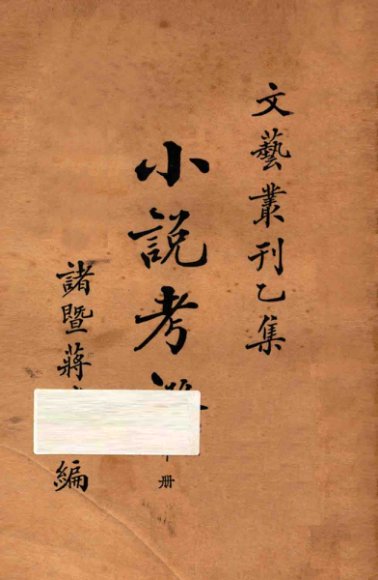 文藝叢刊乙集
小說考
册
諸暨蔣
編